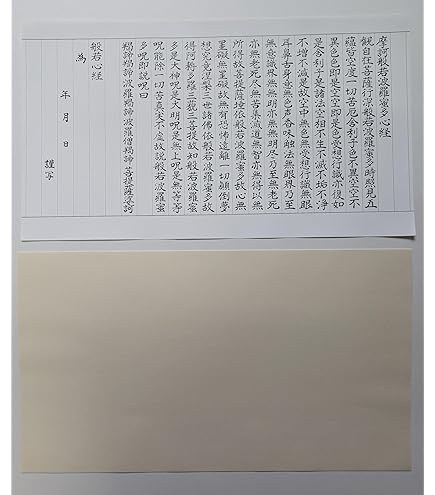 摩訶般若波羅蜜多心経
観自在菩薩行深般若波羅蜜多時照見五
蘊皆空度一切苦厄舎利子色不異空空不
異色色即是空空即是色受想行識亦復如
是舎利子是諸法空相不生不滅不垢不浄
不増不減是故空中無色無受想行識無眼
耳鼻舌身意無色声香味触法無眼界乃至
無意識界無無明亦無無明尽乃至無老死
亦無老死尽無苦集滅道無智亦無得以無
所得故菩提薩埵依般若波羅蜜多故心無
罣礙無罣礙故無有恐怖遠離一切顛倒夢
想究竟涅槃三世諸佛依般若波羅蜜多故
得阿耨多羅三藐三菩提故知般若波羅蜜
多是大神呪是大明呪是無上呪是無等等
呪能除一切苦真実不虚故説般若波羅蜜
多呪即説呪曰
羯諦羯諦波羅羯諦波羅僧羯諦菩提薩婆訶
般若心経
為
年 月 日
謹写